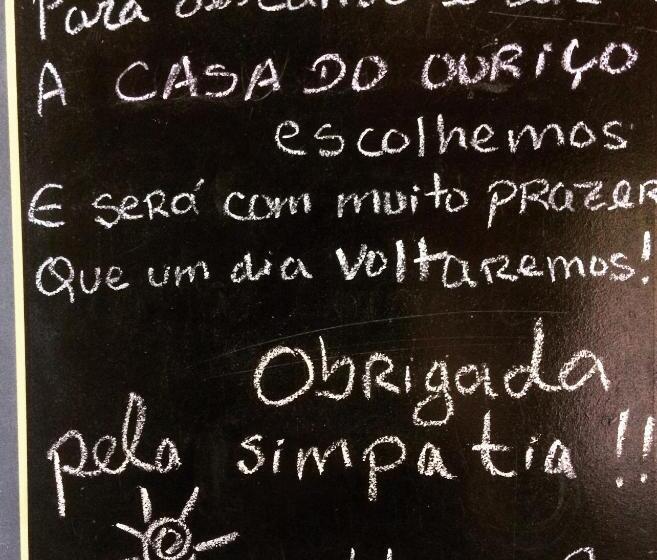 Para
A CASA DO OURIÇO
escolhemos
E será com muito PRAZER
Que um dia Voltaremos!
Obrigada
pela simpatia !!